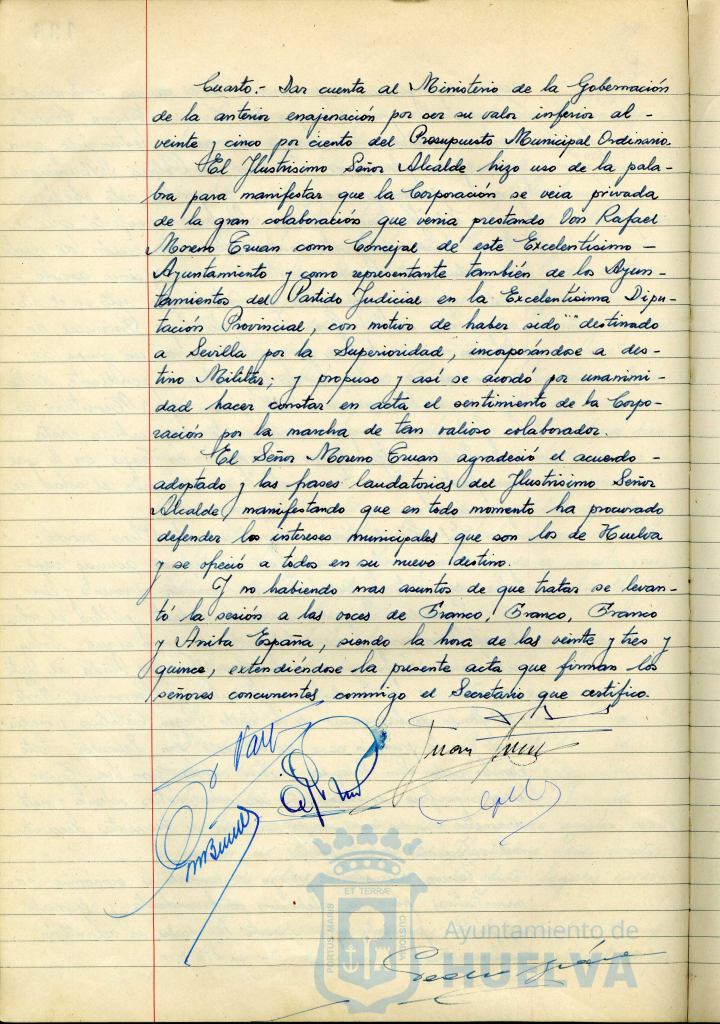 Cuarto.- Dar cuenta al Ministerio de la Gobernación
de la anterior enajenación por ser su valor inferior al -
veinte y cinco por ciento del Presupuesto Municipal Ordinario.
El Ilustrisimo Señor Alcalde hizo uso de la pala-
bra para manifestar que la Corporación se veia privada
de la gran colaboración que venia prestando Don Rafael
Moreno Eruan como Concejal de este Excelentísimo -
Ayuntamiento y como representante también de los Ayun-
tamientos del Partido Judicial en la Excelentísima Dipu-
tación Provincial, con motivo de haber sido destinado
a Sevilla por la Superioridad, incorporándose a des-
tino Militar; y propuso y así se acordó por unanimi-
dad hacer constar en acta el sentimiento de la Corpo-
ración por la marcha de tan valioso colaborador.
El Señor Moreno Eruan agradeció el acuerdo -
adoptado y las frases laudatorias del Ilustrisimo Señor
Alcalde, manifestando que en todo momento ha procurado
defender los intereses municipales que son los de Huelva
y se ofreció a todos en su nuevo destino.
Y no habiendo mas asuntos de que tratar se levan-
tó la sesión a las voces de Franco, Franco, Franco
y Arriba España, siendo la hora de las veinte y tres y
quince, extendiéndose la presente acta que firman los
señores concurrentes conmigo el Secretario que certifico.
Juan
ET TERRÆ
PORTUS MARIS
CUSTODIA
Ayuntamiento de
HUELVA